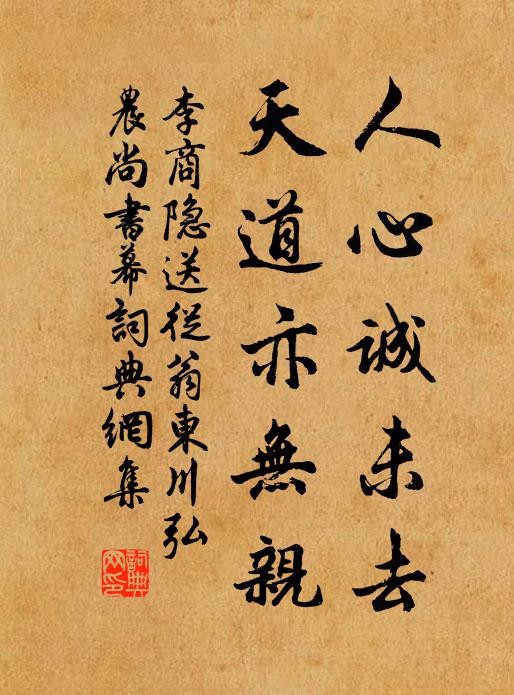 人心誠未去
天道亦無親
李商隐送從翁東川弘
農尚書幕詞典網集
詞典
网印